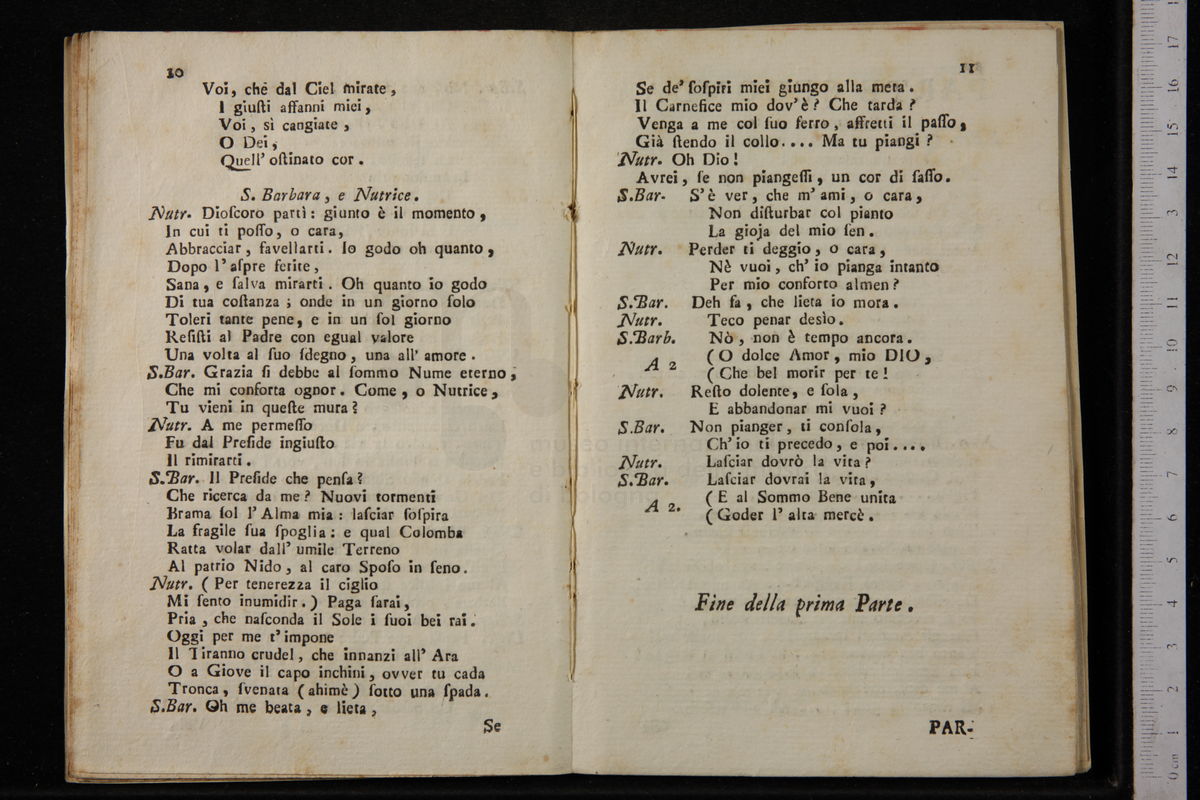 10
Voi, che dal Ciel mirate,
I giuſti affanni miei,
Voi, sì cangiate,
O Dei,
Quell' oſtinato cor.
S. Barbara, e Nutrice.
Nutr. Dioſcoro partì: giunto è il momento,
In cui ti poſſo, o cara,
Abbracciar, favellarti. Io godo oh quanto,
Dopo l' aſpre ferite,
Sana, e ſalva mirarti. Oh quanto io godo
Di tua coſtanza; onde in un giorno ſolo
Toleri tante pene, e in un ſol giorno
Reſiſti al Padre con egual valore
Una volta al ſuo ſdegno, una all' amore.
S.Bar. Grazia ſi debbe al ſommo Nume eterno,
Che mi conforta ognor. Come, o Nutrice,
Tu vieni in queſte mura?
Nutr. A me permeſſo
Fu dal Preſide ingiuſto
Il rimirarti.
S.Bar. Il Preſide che penſa?
Che ricerca da me? Nuovi tormenti
Brama ſol l' Alma mia: laſciar ſoſpira
La fragile ſua ſpoglia: e qual Colomba
Ratta volar dall' umile Terreno
Al patrio Nido, al caro Spoſo in ſeno.
Nutr. (Per tenerezza il ciglio
Mi ſento inumidir.) Paga ſarai,
Pria, che naſconda il Sole i ſuoi bei rai.
Oggi per me t' impone
Il Tiranno crudel, che innanzi all' Ara
O a Giove il capo inchini, ovver tu cada
Tronca, ſvenata (ahimè) ſotto una ſpada.
S.Bar. Oh me beata, e lieta,
Se
11
Se de' ſoſpiri miei giungo alla meta.
Il Carnefice mio dov' è? Che tarda?
Venga a me col ſuo ferro, affretti il paſſo,
Già ſtendo il collo.... Ma tu piangi?
Nutr. Oh Dio!
Avrei, ſe non piangeſſi, un cor di ſaſſo.
S.Bar. S' è ver, che m' ami, o cara,
Non diſturbar col pianto
La gioja del mio ſen.
Nutr. Perder ti deggio, o cara,
Nè vuoi, ch' io pianga intanto
Per mio conforto almen?
S.Bar. Deh fa, che lieta io mora.
Nutr. Teco penar desìo.
S.Barb. Nò, non è tempo ancora.
A 2 (O dolce Amor, mio DIO,
(Che bel morir per te!
Nutr. Reſto dolente, e ſola,
E abbandonar mi vuoi?
S.Bar. Non pianger, ti conſola,
Ch' io ti precedo, e poi....
Nutr. Laſciar dovrò la vita?
S.Bar. Laſciar dovrai la vita,
A 2. (E al Sommo Bene unita
(Goder l' alta mercè.
Fine della prima Parte.
PAR-